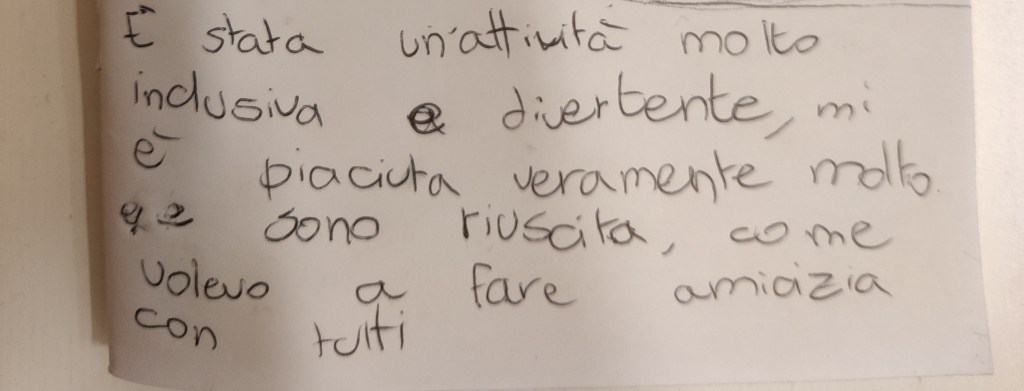 È stata un'attività molto
inclusiva e divertente, mi
è piaciuta veramente molto.
e sono riuscita, come
volevo a fare amicizia
con tutti